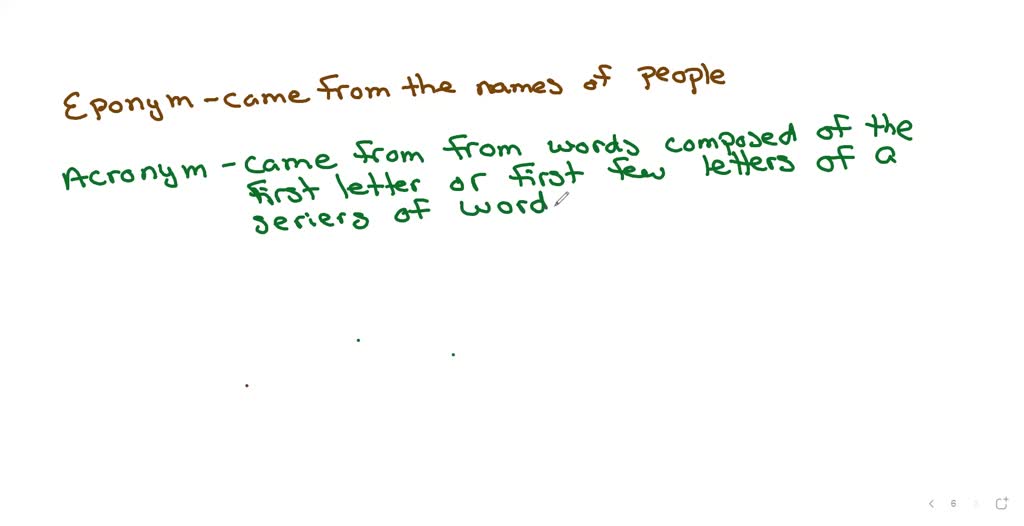 Eponym - came from the names of people
Acronym - came from from words composed of the
first letter or first few letters of a
seriers of word
6